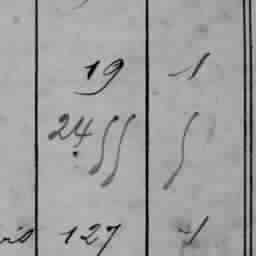 19 1
24 ʃʃ ʃ
127 1